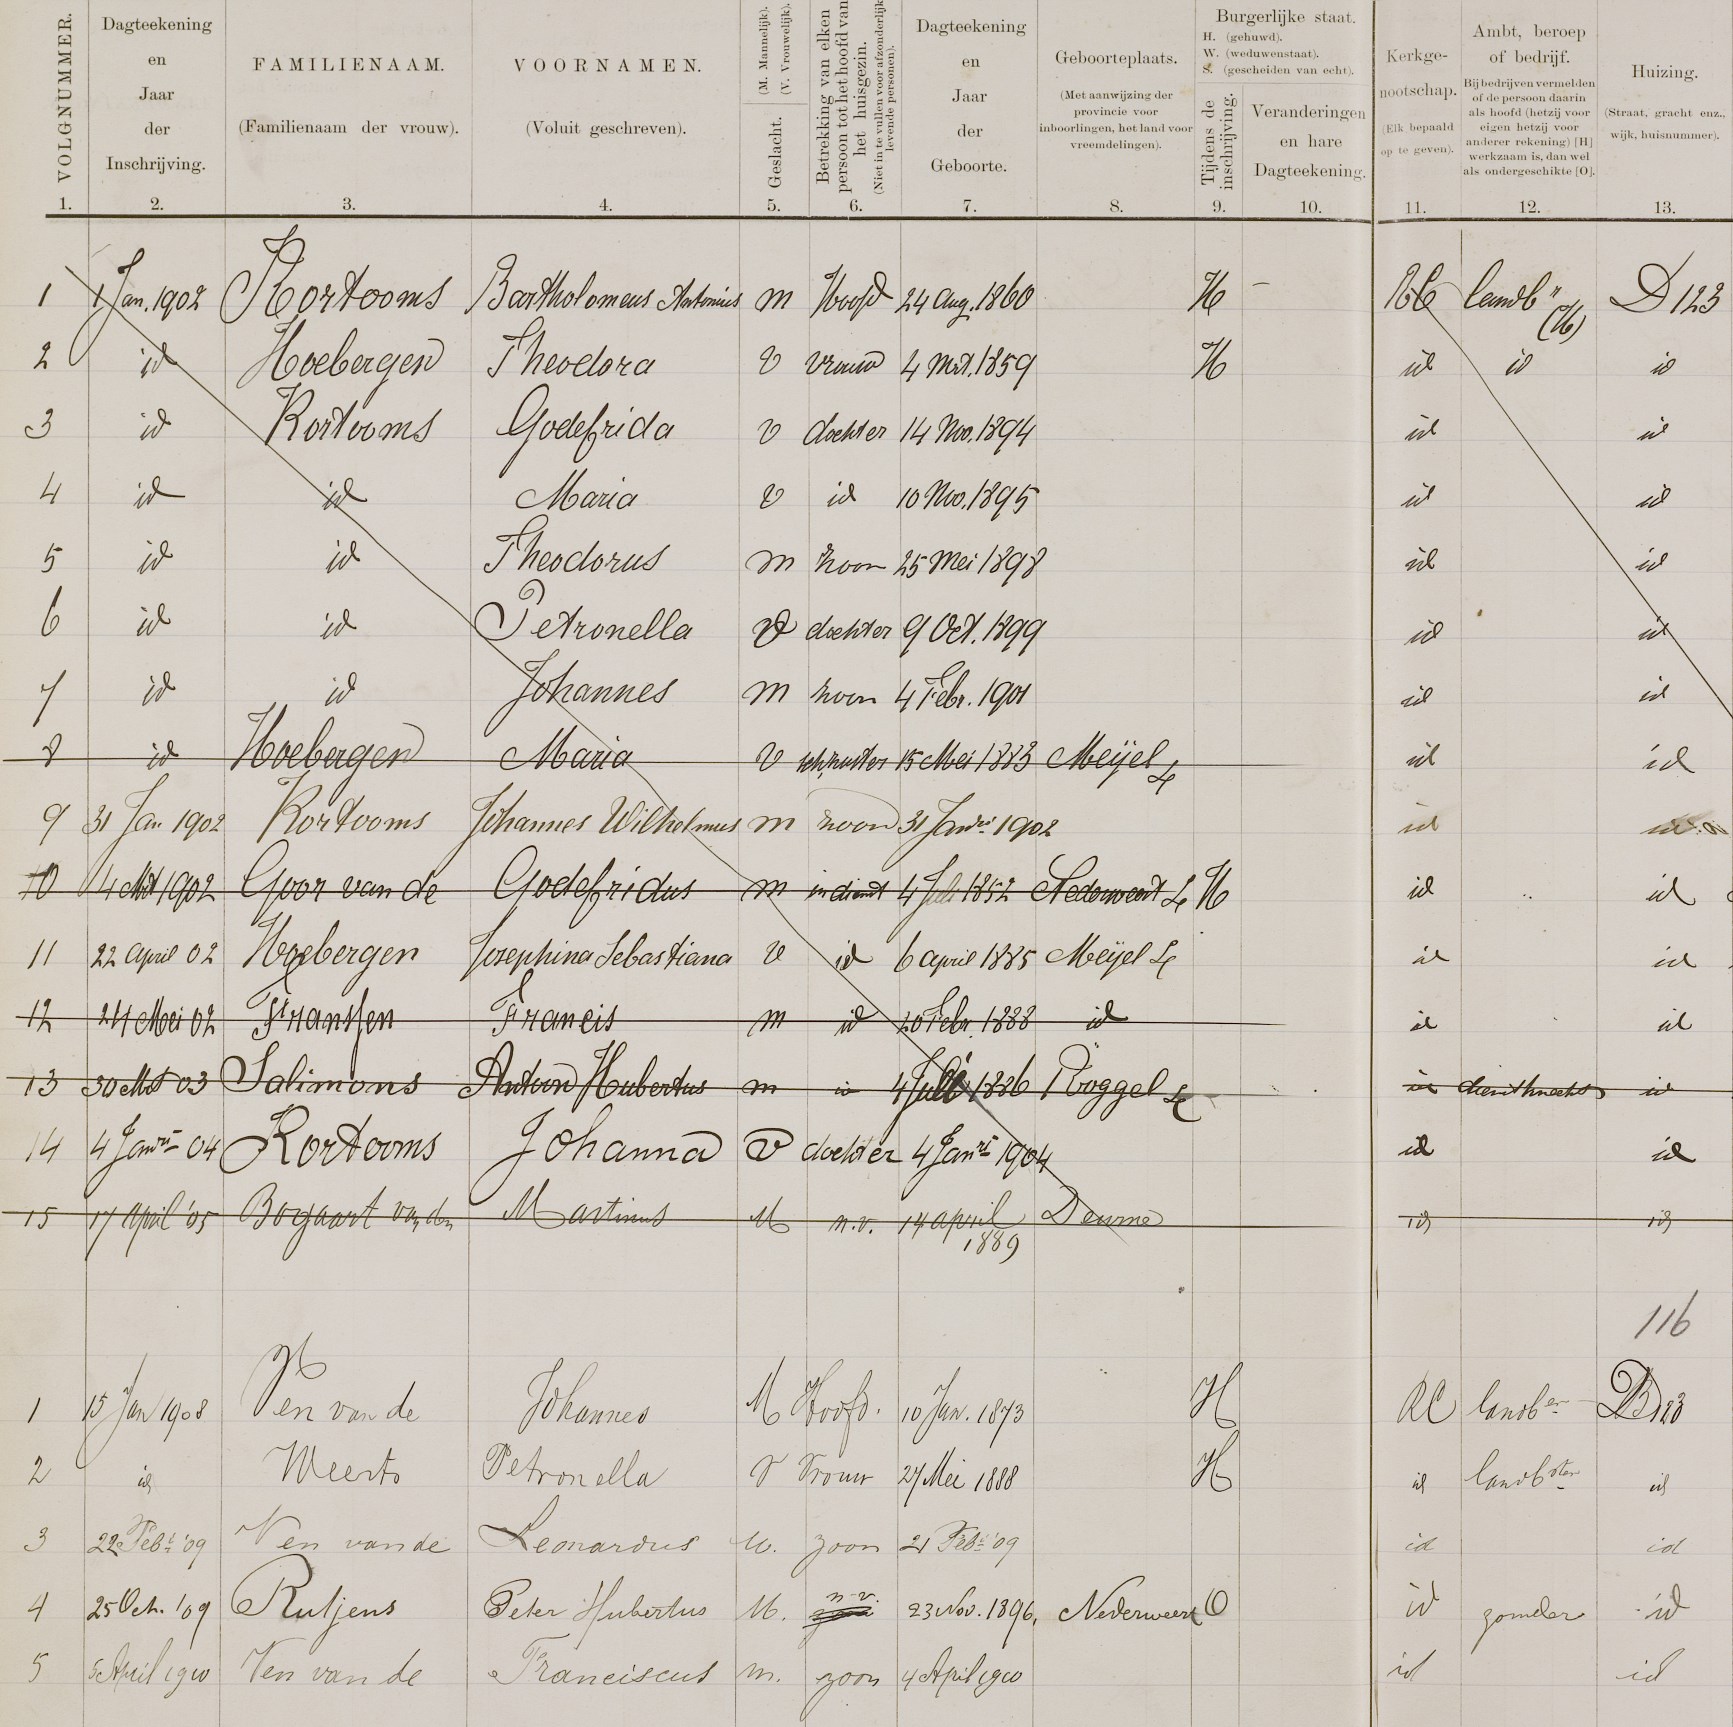 VOLGNUMMER.
Dagteekening
en
Jaar
der
Inschrijving.
FAMILIENAAM.
(Familienaam der vrouw).
VOORNAMEN.
(Voluit geschreven).
Geslacht. (M. Mannelijk). (V. Vrouwelijk).
Betrekking van elken persoon tot het hoofd van het huisgezin.
(Niet in te vullen voor afzonderlijk levende personen).
Dagteekening
en
Jaar
der
Geboorte.
Geboorteplaats.
(Met aanwijzing der
provincie voor
inboorlingen, het land voor
vreemdelingen).
Burgerlijke staat.
H. (gehuwd).
W. (weduwenstaat).
S. (gescheiden van echt).
Tijdens de inschrijving.
Veranderingen
en hare
Dagteekening.
Kerkge-
nootschap.
(Elk bepaald
op te geven).
Ambt, beroep
of bedrijf.
Bij bedrijven vermelden
of de persoon daarin
als hoofd (hetzij voor
eigen hetzij voor
anderer rekening) [H]
werkzaam is, dan wel
als ondergeschikte [O].
Huizing.
(Straat, gracht enz.,
wijk, huisnummer).
1. 2. 3. 4. 5. 6. 7. 8. 9. 10. 11. 12. 13.
1 1 Jan. 1902 Kortooms Bartholomeus Antonius m Hoofd 24 Aug. 1860 H – RC landbr (H) D 123
2 id Hoebergen Theodora v vrouw 4 Mrt. 1859 H id id id
3 id Kortooms Godefrida v dochter 14 Nov. 1894 id id
4 id id Maria v id 10 Nov. 1895 id id
5 id id Theodorus m zoon 25 Mei 1898 id id
6 id id Petronella v dochter 9 Oct. 1899 id id
7 id id Johannes m zoon 4 Febr. 1901 id id
8 id Hoebergen Maria v 15 Mei 1883 Meijel L id id
9 31 Jan 1902 Kortooms Johannes Wilhelmus m zoon 31 Jan 1902 id
10 4 Mrt 1902 Goor van de Godefridus m in dienst 4 Juli 1852 Nederweert L H id id
11 22 April 02 Hoebergen Josephina Sebastiana v id 6 April 1885 Meijel L id id
12 24 Mei 02 Franssen Francis m id 20 Febr. 1888 id id id
13 30 Mrt 03 Salimons Antoon Hubertus m id 4 Juli 1886 Roggel L id dienstknecht id
14 4 Jan 04 Kortooms Johanna v dochter 4 Jan 1904 id id
15 17 April '05 Bogaart van den Martinus M n.v. 14 april 1889 Deurne id id
116
1 15 Jan 1908 H Ven van de Johannes M Hoofd. 10 Jan. 1873 H RC landber B 123
2 id Weerts Petronella V Vrouw 27 Mei 1888 H id landbster id
3 22 Febr '09 Ven van de Leonardus M. zoon 21 Febr '09 id id
4 25 Oct. '09 Rutjens Peter Hubertus M. n.v. 23 Nov. 1896, Nederweert O id zonder id
5 5 April 1910 Ven van de Franciscus m. zoon 4 April 1910 id id